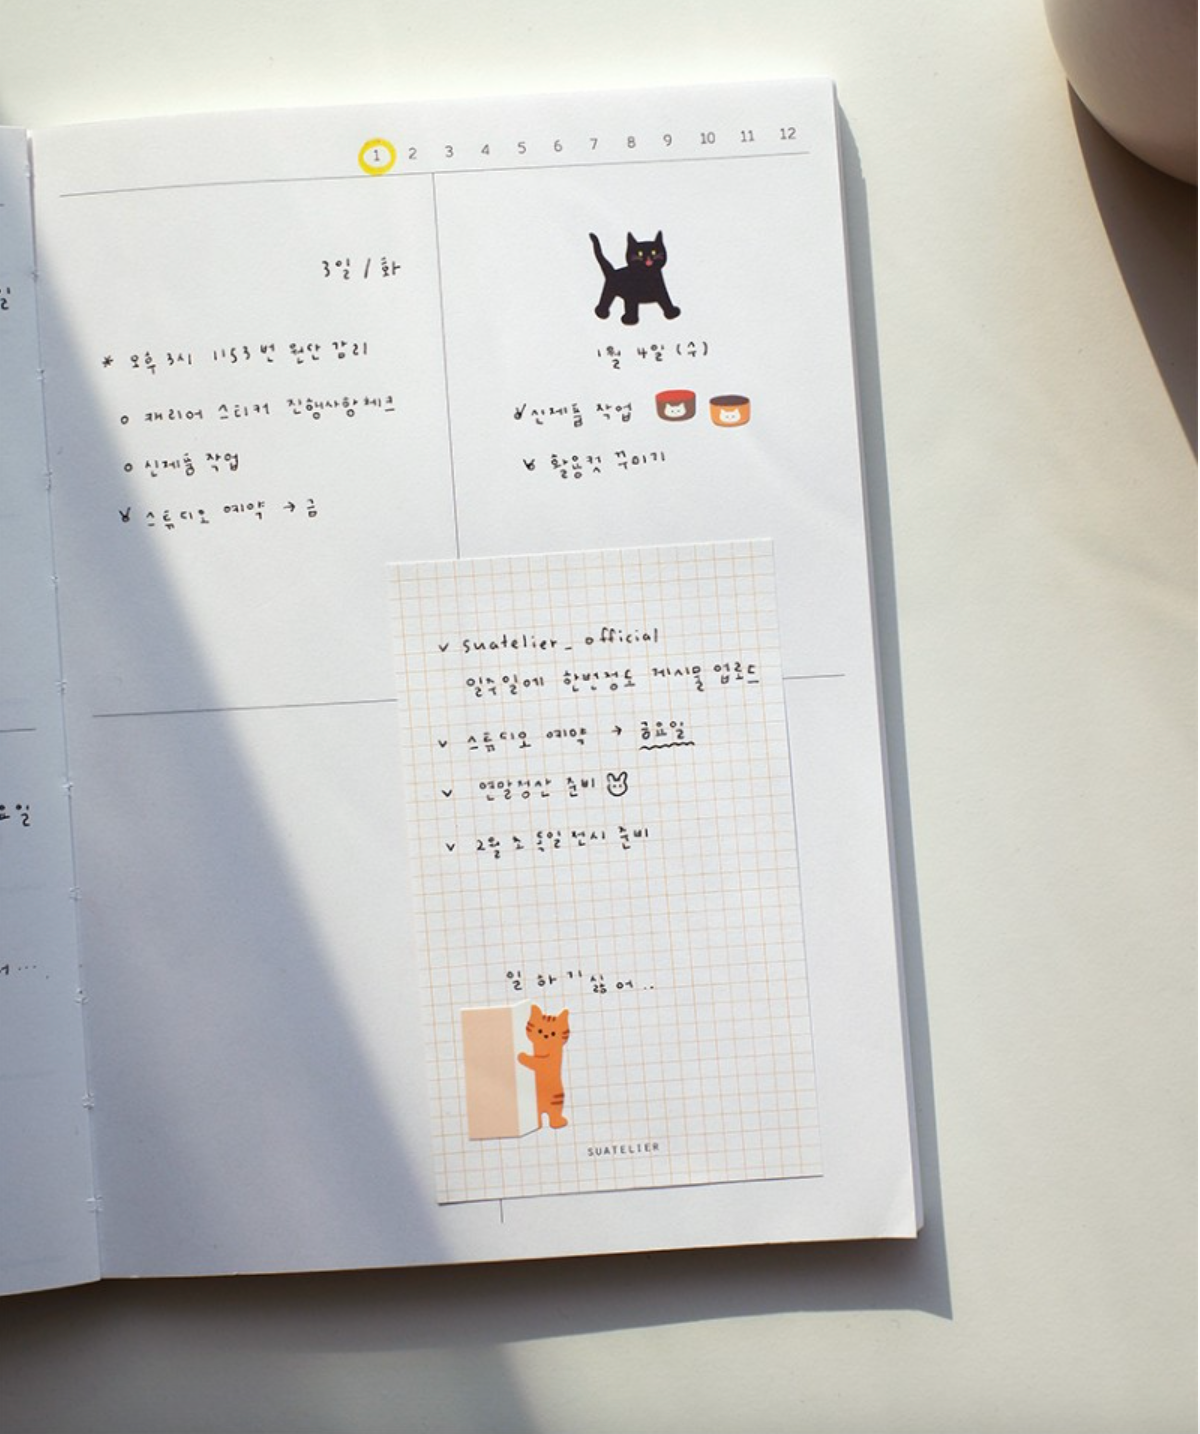 1 2 3 4 5 6 7 8 9 10 11 12
3일 / 화
* 오후 3시 1153번 원단 감리
o 캐리어 스티커 진행사항체크
o 신제품 작업
v 스튜디오 예약 → 금
1월 4일 (수)
v 신제품 작업
v 활용컷 꾸미기
v suatelier_official
일주일에 한번정도 게시물 업로드
v 스튜디오 예약 → 금요일
v 연말정산 준비
v 2월 초 독일 전시 준비
일 하기 싫어..
SUATELIER
일
요일